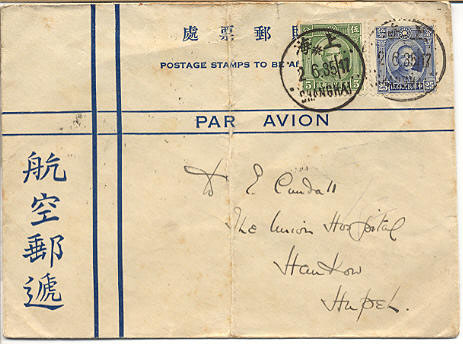 處票郵貼
POSTAGE STAMPS TO BE AF
上海
2.6.35.17
SHANGHAI
伍
5
5
25
25
PAR AVION
航空郵遞
Dr E Cundall
The Union Hospital
Hankow
Hupeh.